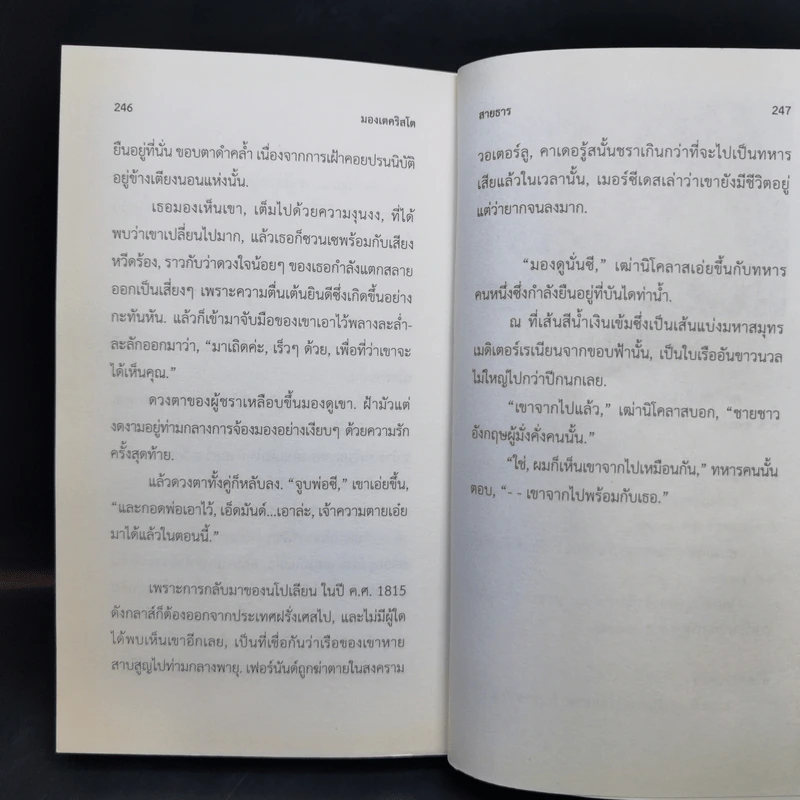 246
มองเตคริสโต
ยืนอยู่ที่นั่น ขอบตาดำคล้ำ เนื่องจากการเฝ้าคอยปรนนิบัติ
อยู่ข้างเตียงนอนแห่งนั้น.
เธอมองเห็นเขา, เต็มไปด้วยความงุนงง, ที่ได้
พบว่าเขาเปลี่ยนไปมาก, แล้วเธอก็ซวนเซพร้อมกับเสียง
หวีดร้อง, ราวกับว่าดวงใจน้อยๆ ของเธอกำลังแตกสลาย
ออกเป็นเสี่ยงๆ เพราะความตื่นเต้นยินดีซึ่งเกิดขึ้นอย่าง
กะทันหัน. แล้วก็เข้ามาจับมือของเขาเอาไว้พลางละล่ำ-
ละลักออกมาว่า, “มาเถิดค่ะ, เร็วๆ ด้วย, เพื่อที่ว่าเขาจะ
ได้เห็นคุณ.”
ดวงตาของผู้ชราเหลือบขึ้นมองดูเขา. ฝ้ามัวแต่
งดงามอยู่ท่ามกลางการจ้องมองอย่างเงียบๆ ด้วยความรัก
ครั้งสุดท้าย.
แล้วดวงตาทั้งคู่ก็หลับลง. “จูบพ่อซี,” เขาเอ่ยขึ้น,
“และกอดพ่อเอาไว้, เอ็ดมันด์...เอาล่ะ, เจ้าความตายเอ๋ย
มาได้แล้วในตอนนี้.”
เพราะการกลับมาของนโปเลียน ในปี ค.ศ. 1815
ดังกลาส์ก็ต้องออกจากประเทศฝรั่งเศสไป, และไม่มีผู้ใด
ได้พบเห็นเขาอีกเลย, เป็นที่เชื่อกันว่าเรือของเขาหาย
สาบสูญไปท่ามกลางพายุ. เฟอร์นันด์ถูกฆ่าตายในสงคราม
สายธาร
247
วอเตอร์ลู, คาเดอรู้สนั้นชราเกินกว่าที่จะไปเป็นทหาร
เสียแล้วในเวลานั้น, เมอร์ซีเดสเล่าว่าเขายังมีชีวิตอยู่
แต่ว่ายากจนลงมาก.
“มองดูนั่นซี,” เฒ่านิโคลาสเอ่ยขึ้นกับทหาร
คนหนึ่งซึ่งกำลังยืนอยู่ที่บันไดท่าน้ำ.
ณ ที่เส้นสีน้ำเงินเข้มซึ่งเป็นเส้นแบ่งมหาสมุทร
เมดิเตอร์เรเนียนจากขอบฟ้านั้น, เป็นใบเรืออันขาวนวล
ไม่ใหญ่ไปกว่าปีกนกเลย.
“เขาจากไปแล้ว,” เฒ่านิโคลาสบอก, “ชายชาว
อังกฤษผู้มั่งคั่งคนนั้น.”
“ใช่, ผมก็เห็นเขาจากไปเหมือนกัน,” ทหารคนนั้น
ตอบ, “- - เขาจากไปพร้อมกับเธอ.”